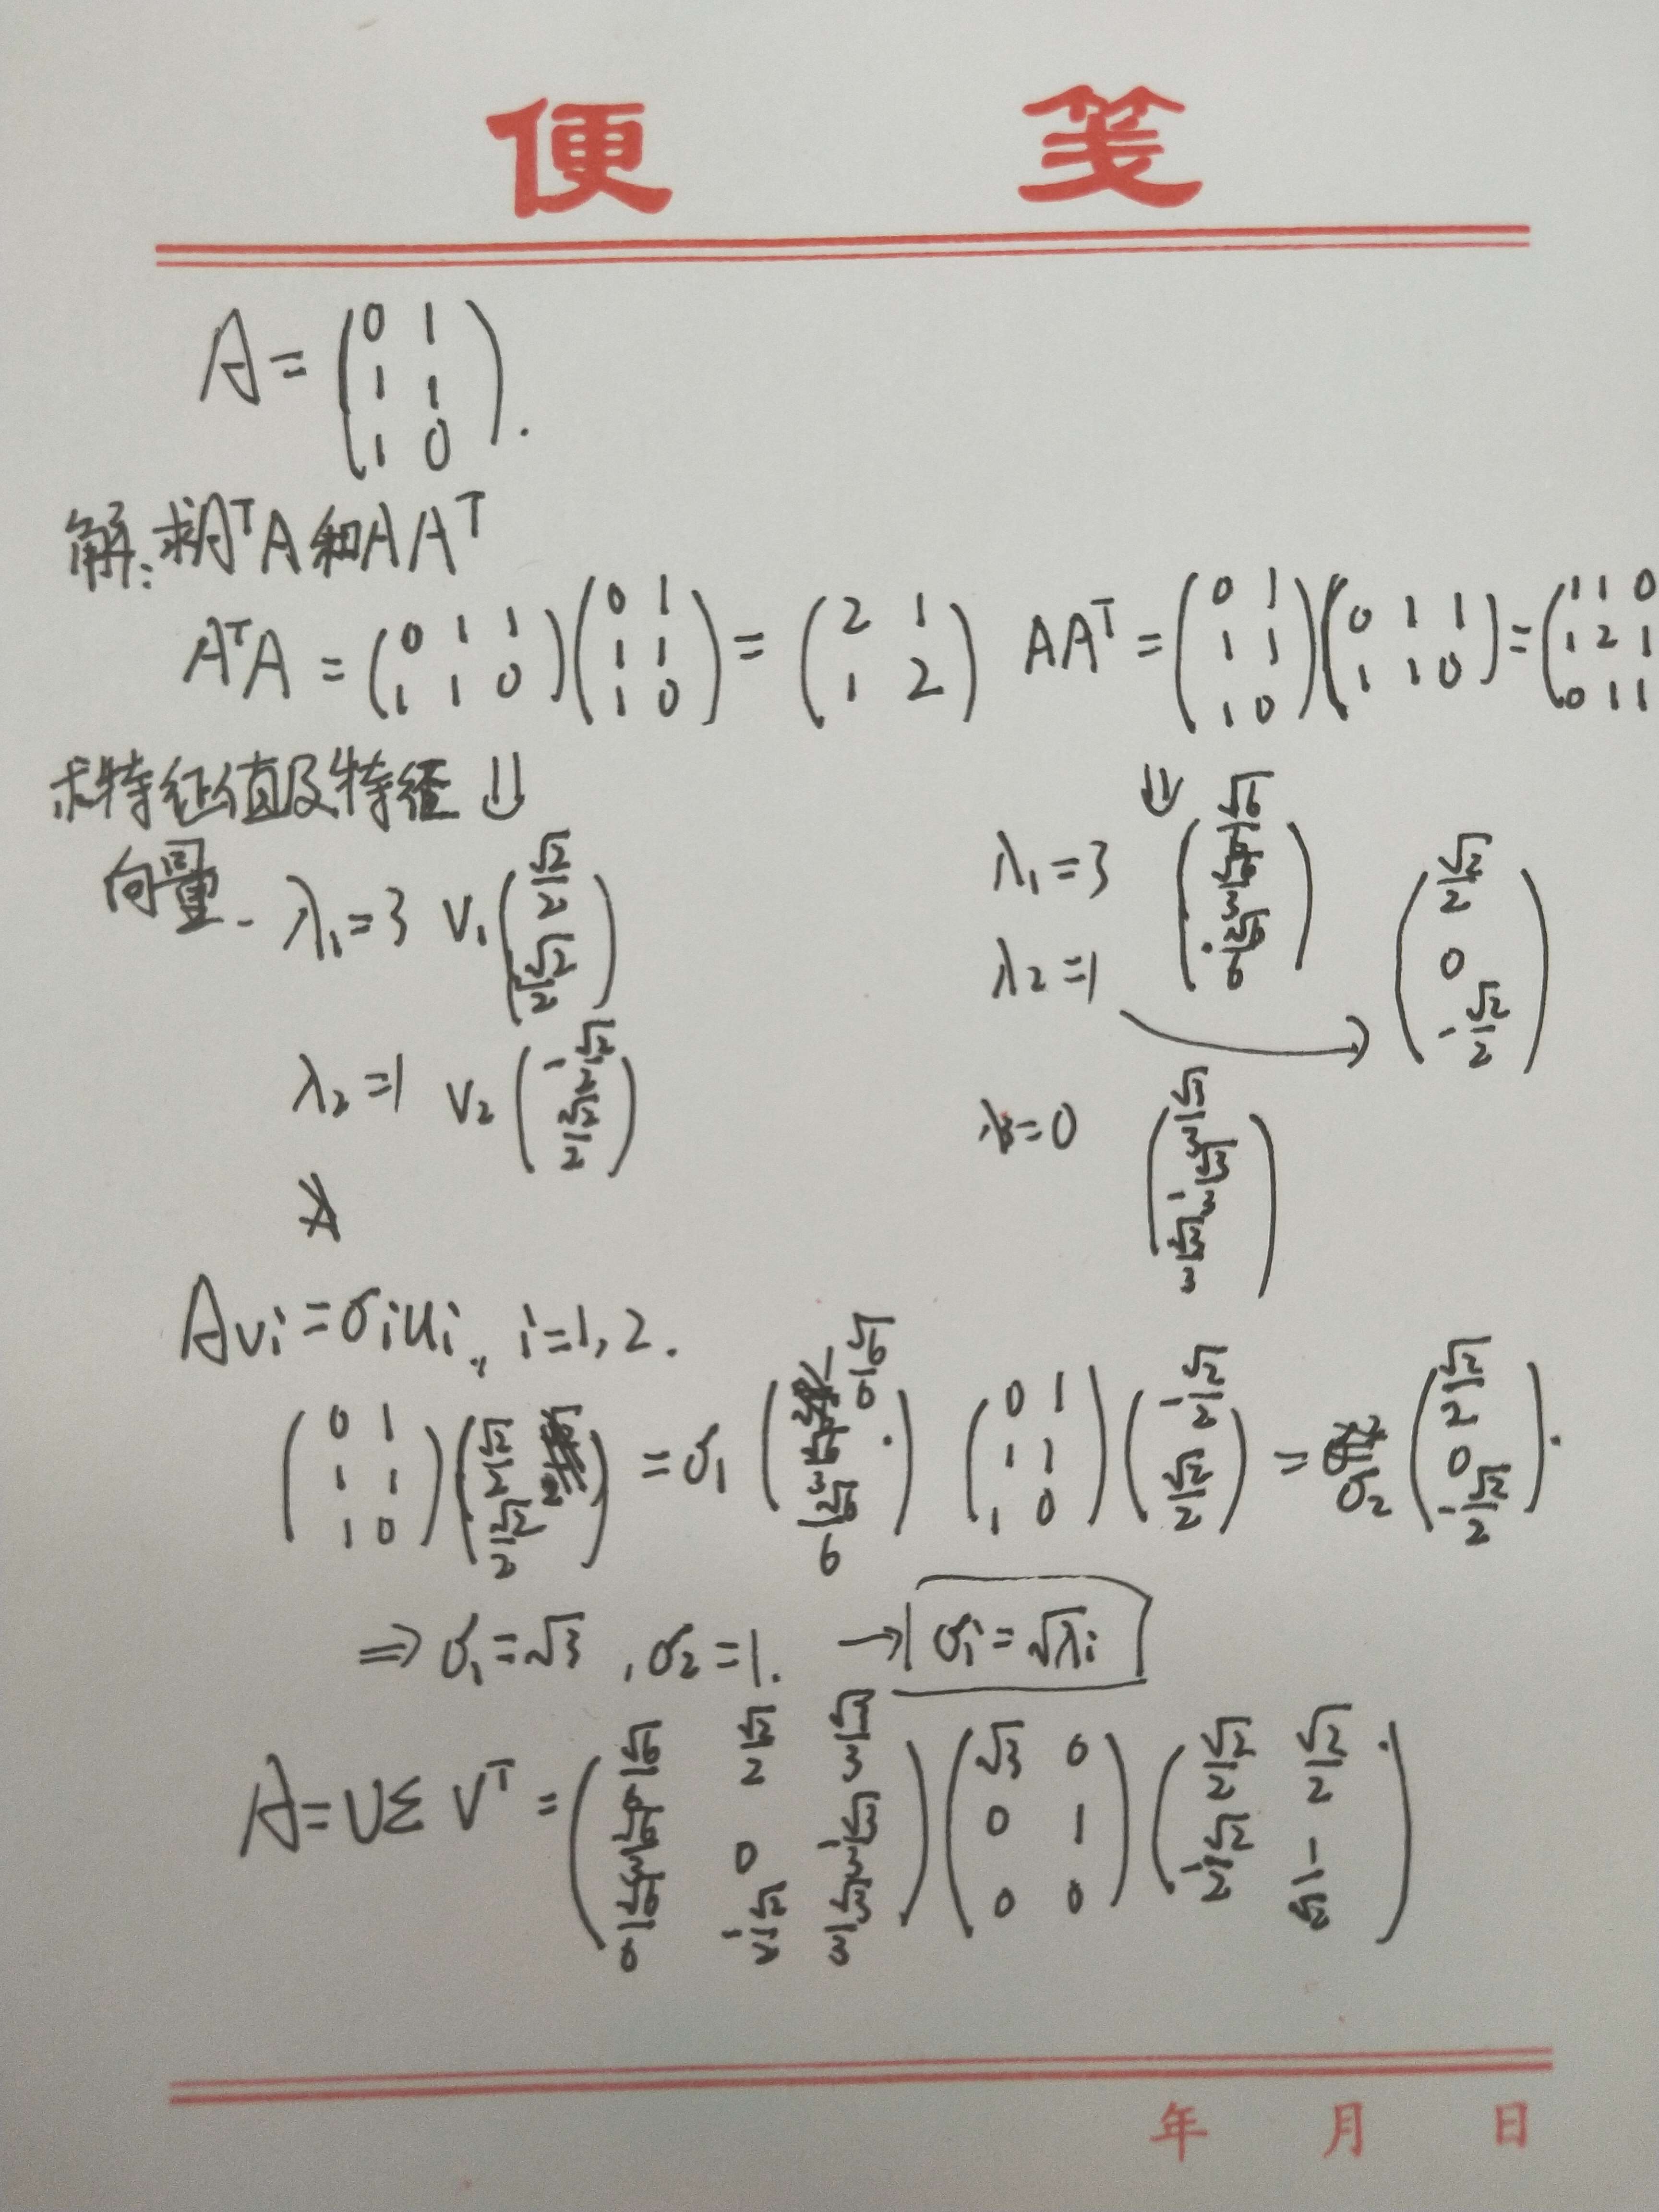 便 笺
A = (0 1
1 1
1 0).
解:求AᵀA和AAᵀ
AᵀA = (0 1 1; 1 1 0)(0 1; 1 1; 1 0) = (2 1; 1 2) AAᵀ = (0 1; 1 1; 1 0)(0 1 1; 1 1 0) = (1 1 0; 1 2 1; 0 1 1)
求特征值及特征 ⇓ ⇓
向量.
λ₁=3 v₁(√2/2; √2/2) λ₁=3 (√6/6; √6/3; √6/6)
λ₂=1 v₂(-√2/2; √2/2) λ₂=1 → (√2/2; 0; -√2/2)
λ₃=0 (√3/3; -√3/3; √3/3)
Avᵢ=σᵢuᵢ, i=1,2.
(0 1; 1 1; 1 0)(√2/2; √2/2) = σ₁(√6/6; √6/3; √6/6). (0 1; 1 1; 1 0)(-√2/2; √2/2) = σ₂(√2/2; 0; -√2/2).
⇒ σ₁=√3, σ₂=1. → σᵢ=√λᵢ
A=UΣVᵀ = (√6/6 √2/2 √3/3; √6/3 0 -√3/3; √6/6 -√2/2 √3/3)(√3 0; 0 1; 0 0)(√2/2 √2/2; -√2/2 √2/2).
年 月 日